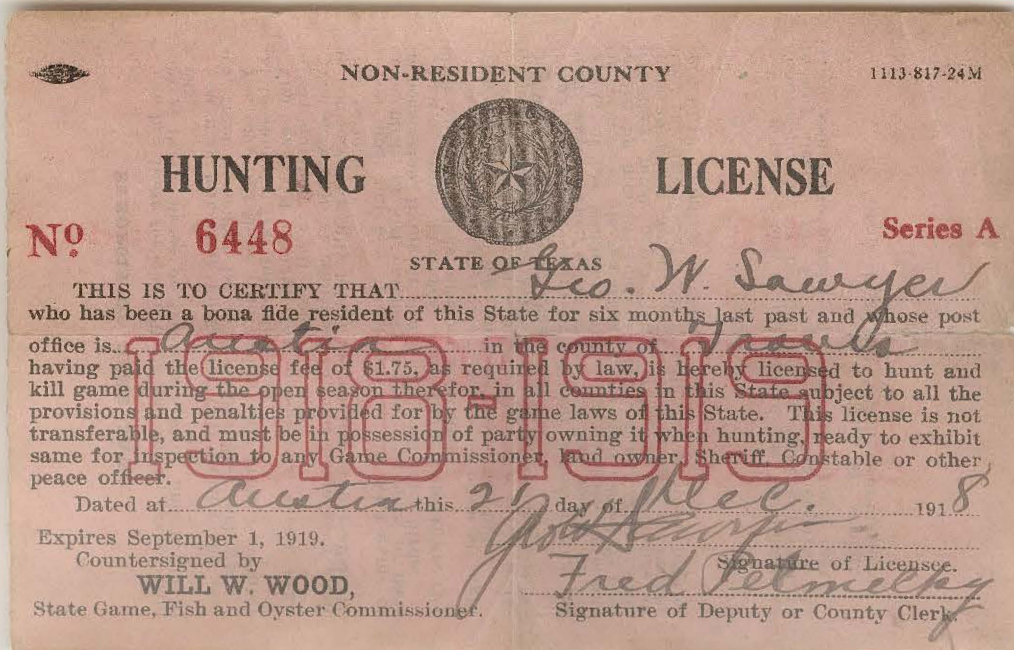 NON-RESIDENT COUNTY 1113-817-24M
HUNTING LICENSE
Nº 6448 Series A
STATE OF TEXAS
THIS IS TO CERTIFY THAT Geo. W. Sawyer
who has been a bona fide resident of this State for six months last past and whose post
office is Austin in the county of Travis
having paid the license fee of $1.75, as required by law, is hereby licensed to hunt and
kill game during the open season therefor, in all counties in this State subject to all the
provisions and penalties provided for by the game laws of this State. This license is not
transferable, and must be in possession of party owning it when hunting, ready to exhibit
same for inspection to any Game Commissioner, land owner, Sheriff, Constable or other
peace officer.
1918-1919
Dated at Austin this 21 day of Dec. 1918
Expires September 1, 1919. Geo W Sawyer
Countersigned by Signature of Licensee.
WILL W. WOOD, Fred Petmecky
State Game, Fish and Oyster Commissioner. Signature of Deputy or County Clerk.